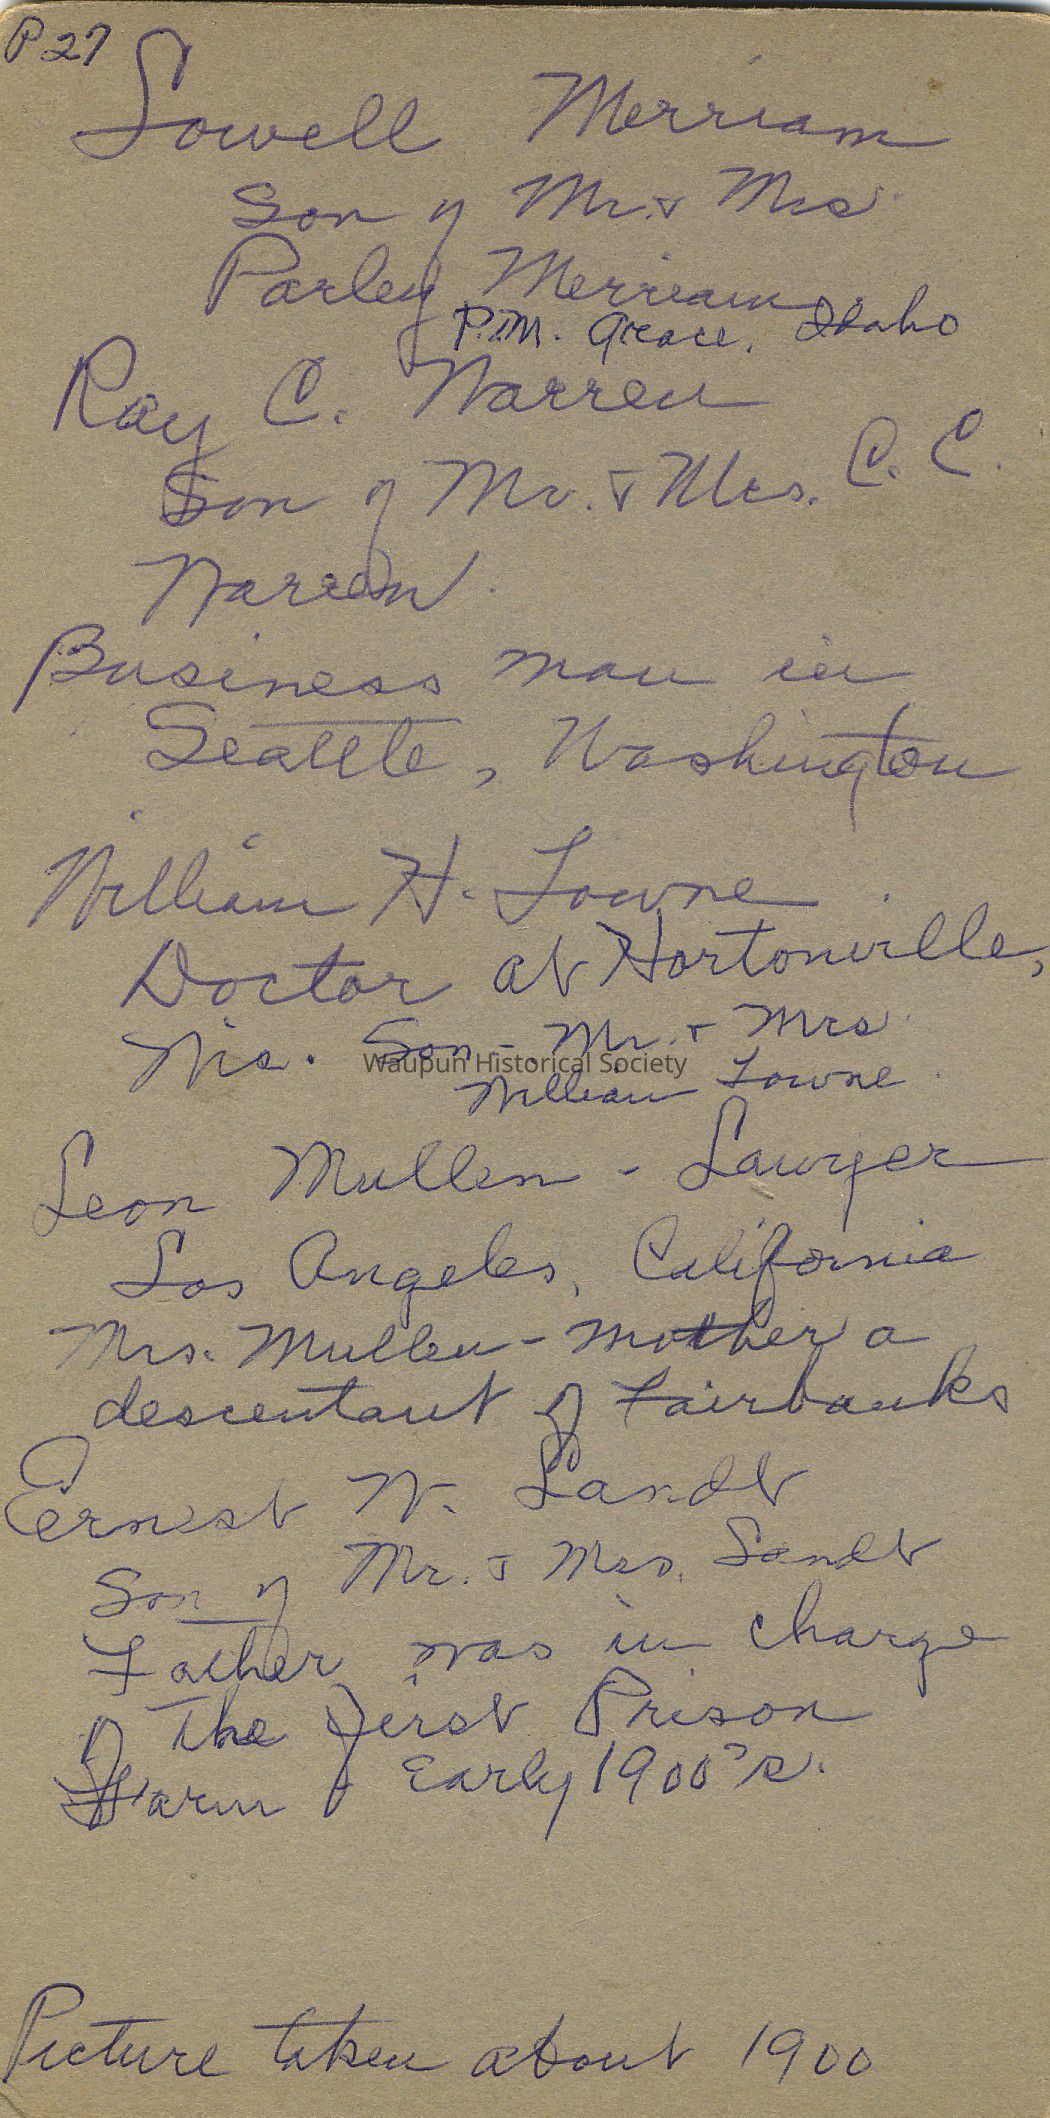 P 27
Lowell Merriam
Son of Mr. & Mrs.
Parley Merriam
P.M. Grace, Idaho
Ray C. Warren
Son of Mr. & Mrs. C. C.
Warren.
Business man in
Seattle, Washington
William H. Towne
Doctor at Hortonville,
Wis. Son - Mr. & Mrs.
Waupun Historical Society
William Towne.
Leon Mullen - Lawyer
Los Angeles, California
Mrs. Mullen - mother a
descentant of Fairbanks
Ernest W. Landt
Son of Mr. & Mrs. Landt
Father was in charge
of the first Prison
Farm - Early 1900's.
Picture taken about 1900